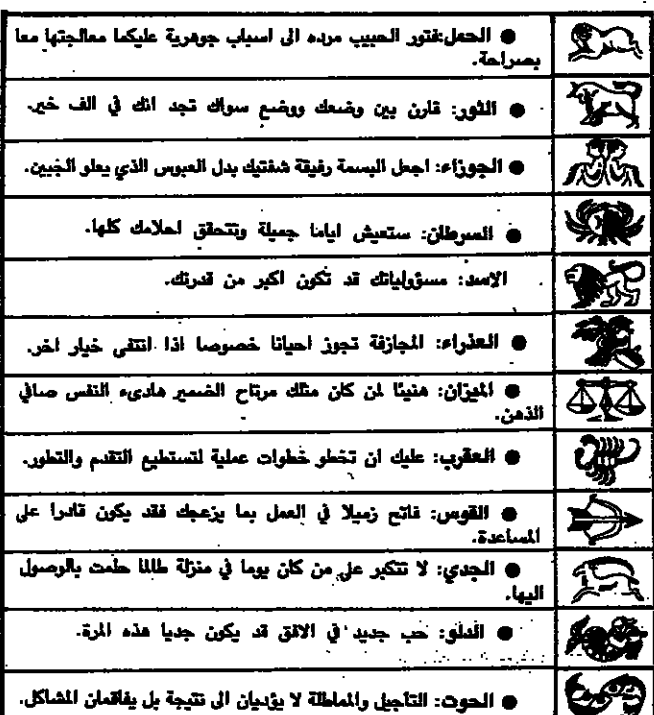 ● الحمل:فتور الحبيب مرده الى اسباب جوهرية عليكما معالجتها معا
بصراحة.
● الثور: قارن بين وضعك ووضع سواك تجد انك في الف خير.
● الجوزاء: اجعل البسمة رفيقة شفتيك بدل العبوس الذي يعلو الجبين.
● السرطان: ستعيش اياما جميلة وتتحقق احلامك كلها.
الاسد: مسؤولياتك قد تكون اكبر من قدرتك.
● العذراء: المجازفة تجوز احيانا خصوصا اذا انتفى خيار اخر.
● الميزان: هنيئا لمن كان مثلك مرتاح الضمير هادىء النفس صافي
الذهن.
● العقرب: عليك ان تخطو خطوات عملية لتستطيع التقدم والتطور.
● القوس: فاتح زميلا في العمل بما يزعجك فقد يكون قادرا على
المساعدة.
● الجدي: لا تتكبر على من كان يوما في منزلة طالما حلمت بالوصول
اليها.
● الدلو: حب جديد في الافق قد يكون جديا هذه المرة.
● الحوت: التأجيل والمماطلة لا يؤديان الى نتيجة بل يفاقمان المشاكل.